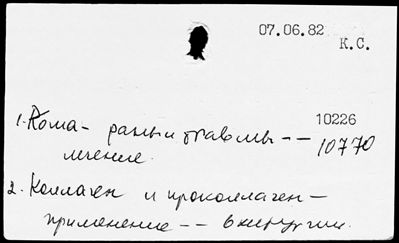 07.06.82
К.С.
10226
1. Кома - раны и травмы -- 10770
лечение.
2. Коллаген и проколлаген -
применение -- в хирургии.